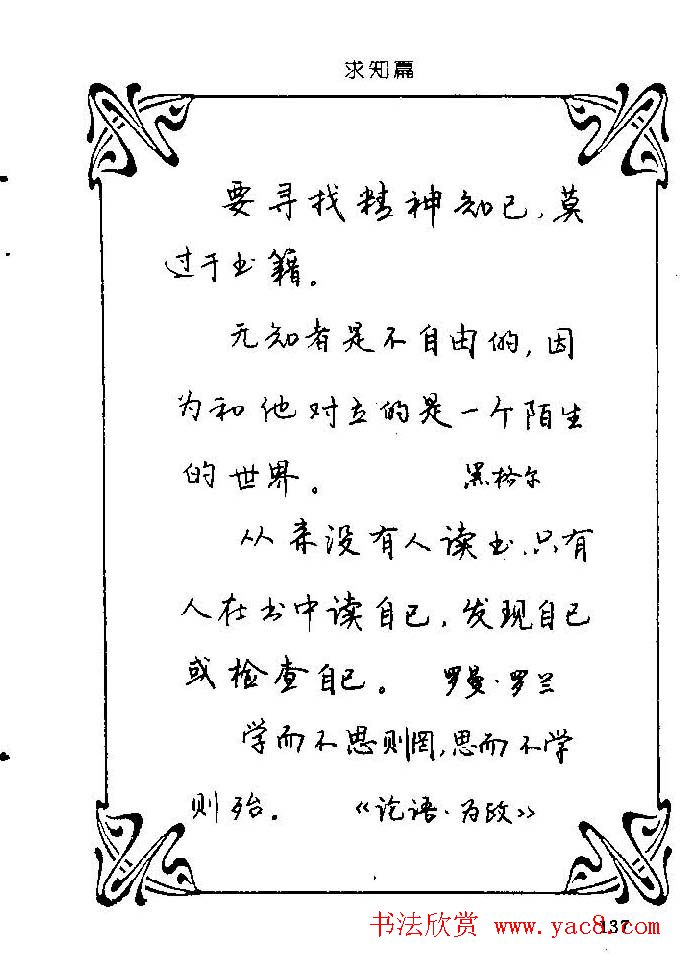 求知篇
要寻找精神知己,莫
过于书籍。
无知者是不自由的,因
为和他对立的是一个陌生
的世界。 黑格尔
从来没有人读书,只有
人在书中读自己,发现自己
或检查自己。 罗曼·罗兰
学而不思则罔,思而不学
则殆。 《论语·为政》
书法欣赏 www.yac8.com
137